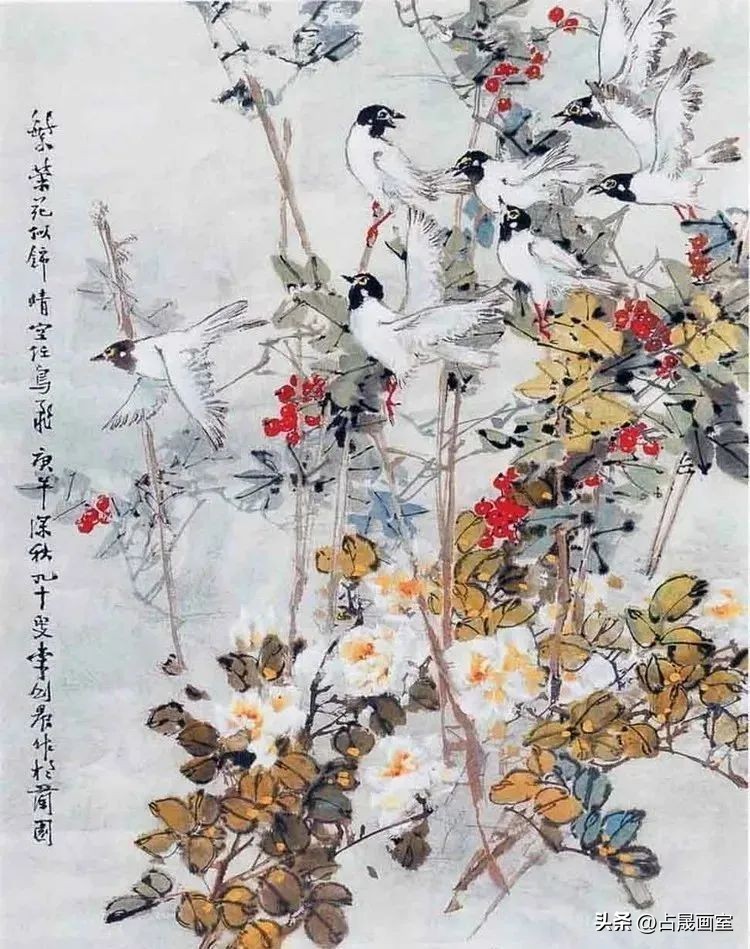 繁荣花似錦晴空任鳥飛庚午深秋九十叟李剑晨作於蘭園
头条@占晟画室